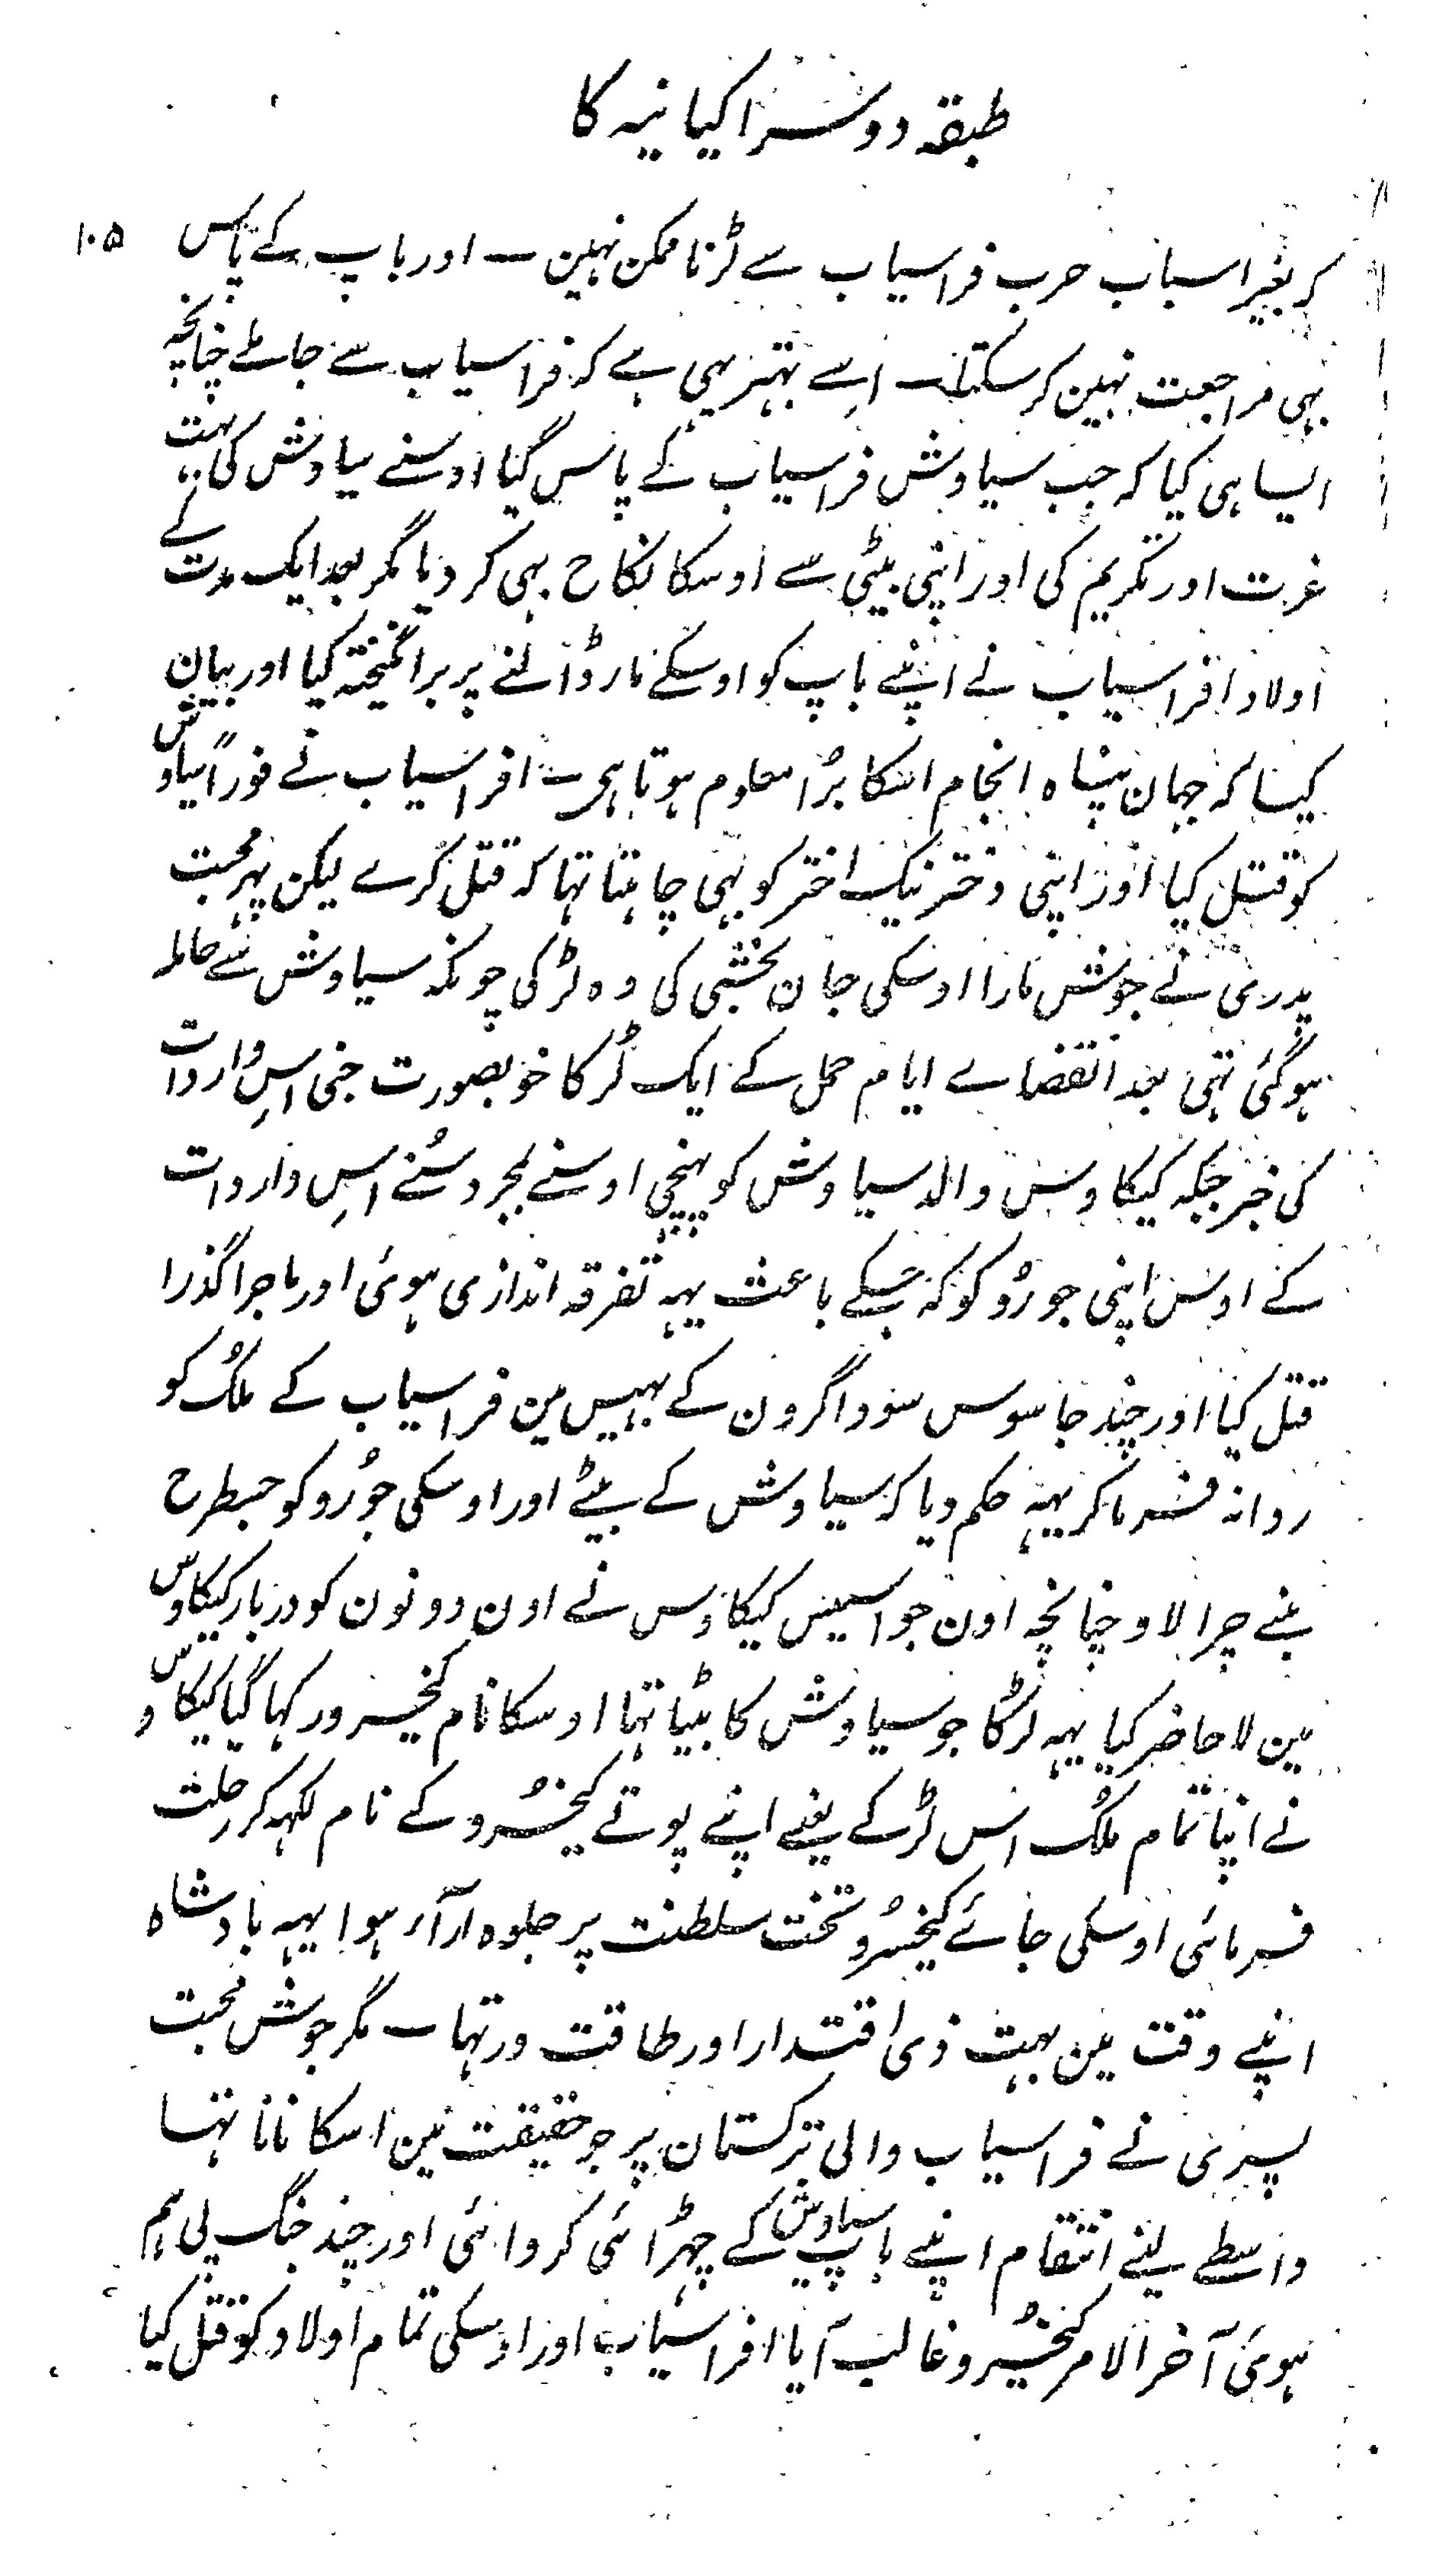 طبقہ دوسرا کیانیہ کا
۱۰۵
کہ بغیر اسباب حرب فراسیاب سے لڑنا ممکن نہین ۔ اور باپ کے پاس
بہی مراجعت نہین کر سکتا ۔ اِسے بہتر یہی ہے کہ فراسیاب سے جاملے چنانچہ
ایسا ہی کیا کہ جب سیاوش فراسیاب کے پاس گیا اوسنے سیاوش کی بہت
عزت اور تکریم کی اور اپنی بیٹی سے اوسکا نکاح بہی کر دیا مگر بعد ایک مدت کے
اولاد افراسیاب نے اپنے باپ کو اوسکے مار ڈالنے پر برانگیختہ کیا اور بیان
کیا کہ جہان پناہ انجام اسکا بُرا معلوم ہوتا ہی ۔ افراسیاب نے فوراً سیاوش
کو قتل کیا اور اپنی دختر نیک اختر کو بہی چاہتا تہا کہ قتل کرے لیکن پہر محبت
پدری نے جوش مارا اوسکی جان بخشی کی وہ لڑکی چونکہ سیاوش سے حاملہ
ہوگئی تہی بعد انقضاے ایام حمل کے ایک لڑکا خوبصورت جنی اسِ واردات
کی خبر جبکہ کیکاوس والد سیاوش کو پہنچی اوسنے بمجرد سُننے اسِ واردات
کے اوس اپنی جورُو کو کہ جسکے باعث یہہ تفرقہ اندازی ہوئی اور ماجرا گذرا
قتل کیا اور چند جاسوس سوداگرون کے بہیس مین فراسیاب کے ملک کو
روانہ فرما کر یہہ حکم دیا کہ سیاوش کے بیٹے اور اوسکی جوُرو کو جسطرح
بنے چرا لاو چنانچہ اون جواسیس کیکاوس نے اون دونون کو دربار کیکاوس
مین لا حاضر کیا یہہ لڑکا جو سیاوش کا بیٹا تہا اوسکا نام کیخسرو رکہا گیا کیکاوس
نے اپنا تمام ملک اسِ لڑکے یعنے اپنے پوتے کیخسُرو کے نام لکہہ کر رحلت
فرمائی اوسکی جائے کیخسُرو تخت سلطنت پر جلوہ آراء ہوا یہہ بادشاہ
اپنے وقت مین بہت ذی اقتدار اور طاقت ور تہا ۔ مگر جوش محبت
پسری نے فراسیاب والی ترکستان پر جو حقیقت مین اسکا نانا تہا
واسطے لینے انتقام اپنے باپ سیاوش کے چہڑائی کروائی اور چند جنگ پی ہم
ہوئی آخر الامر کیخسُرو غالب آیا افراسیاب اور اوسکی تمام اولاد کو قتل کیا